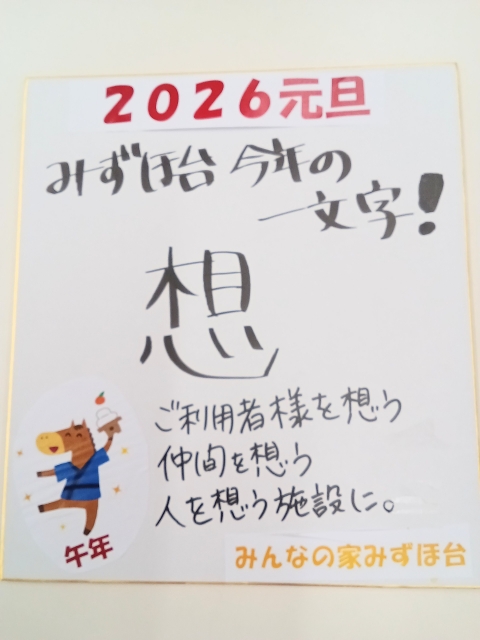 2026元旦
みずほ台 今年の
一文字!
想
ご利用者様を想う
仲間を想う
人を想う施設に。
午年
みんなの家みずほ台